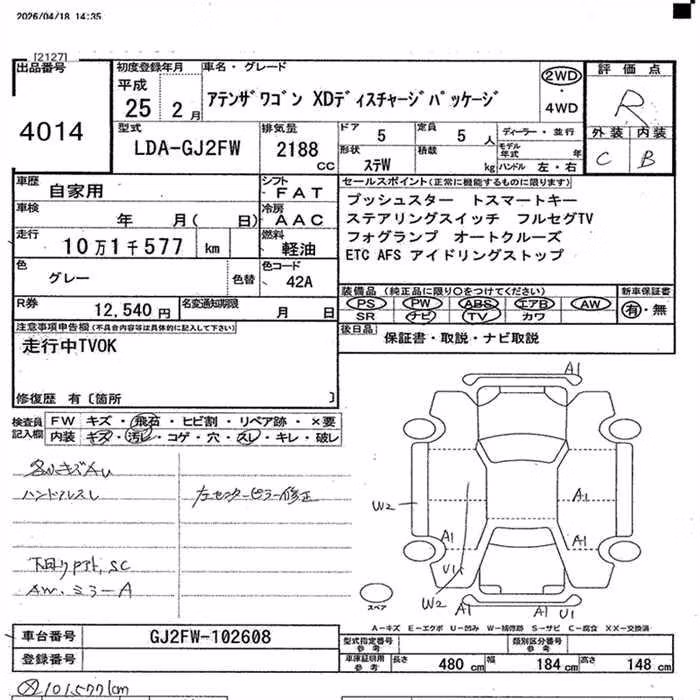 2026/04/18 14:35
[2127]
出品番号
4014
初度登録年月
平成
25 2月
車名・グレード
アテンザワゴン XDディスチャージパッケージ
2WD
・
4WD
評価点
R
外装 内装
C B
型式
LDA-GJ2FW
排気量
2188 cc
ドア 5
定員 5 人
形状 ステW
積載 kg
ディーラー・並行
モデル年式 年
ハンドル 左・右
車歴
自家用
シフト
FAT
車検
年 月( 日)
冷房
AAC
走行
10万1千577 km
燃料
軽油
色
グレー
色替
色コード
42A
R券
12,540 円
名変通知期限
月 日
セールスポイント(正常に機能するものに限ります)
プッシュスター トスマートキー
ステアリングスイッチ フルセグTV
フォグランプ オートクルーズ
ETC AFS アイドリングストップ
装備品 (純正品に限り○をつけてください)
新車保証書
PS PW ABS エアB AW
SR ナビ TV カワ
有・無
後日品
保証書・取説・ナビ取説
注意事項申告欄(不具合内容等は具体的に記入して下さい)
走行中TVOK
修復歴 有〔箇所 〕
検査員記入欄
FW キズ・飛石・ヒビ割・リペア跡・×要
内装 キズ・汚レ・コゲ・穴・スレ・キレ・破レ
ハンドルスレ
左センターピラー修正
下回りサビ, SC
AW. ミラーA
A1
W2
A1
A1
A1
U1
W2
A1
A1
U1
スペア
A-キズ E-エクボ U-凹み W-補修跡 S-サビ C-腐食 XX-交換済
車台番号
GJ2FW-102608
登録番号
型式指定番号
参考
類別区分番号
参考
車庫証明用
参考
長さ 480 cm
幅 184 cm
高さ 148 cm
101,577km